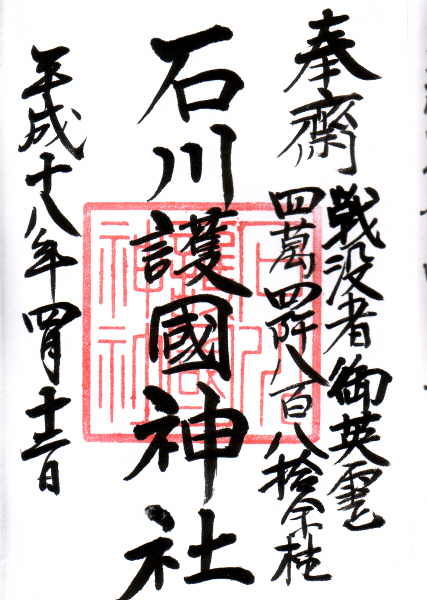 奉齋
戦没者御英霊
四萬四阡八百八拾余柱
石川護國神社
平成十八年四月十二日
石川護國神社